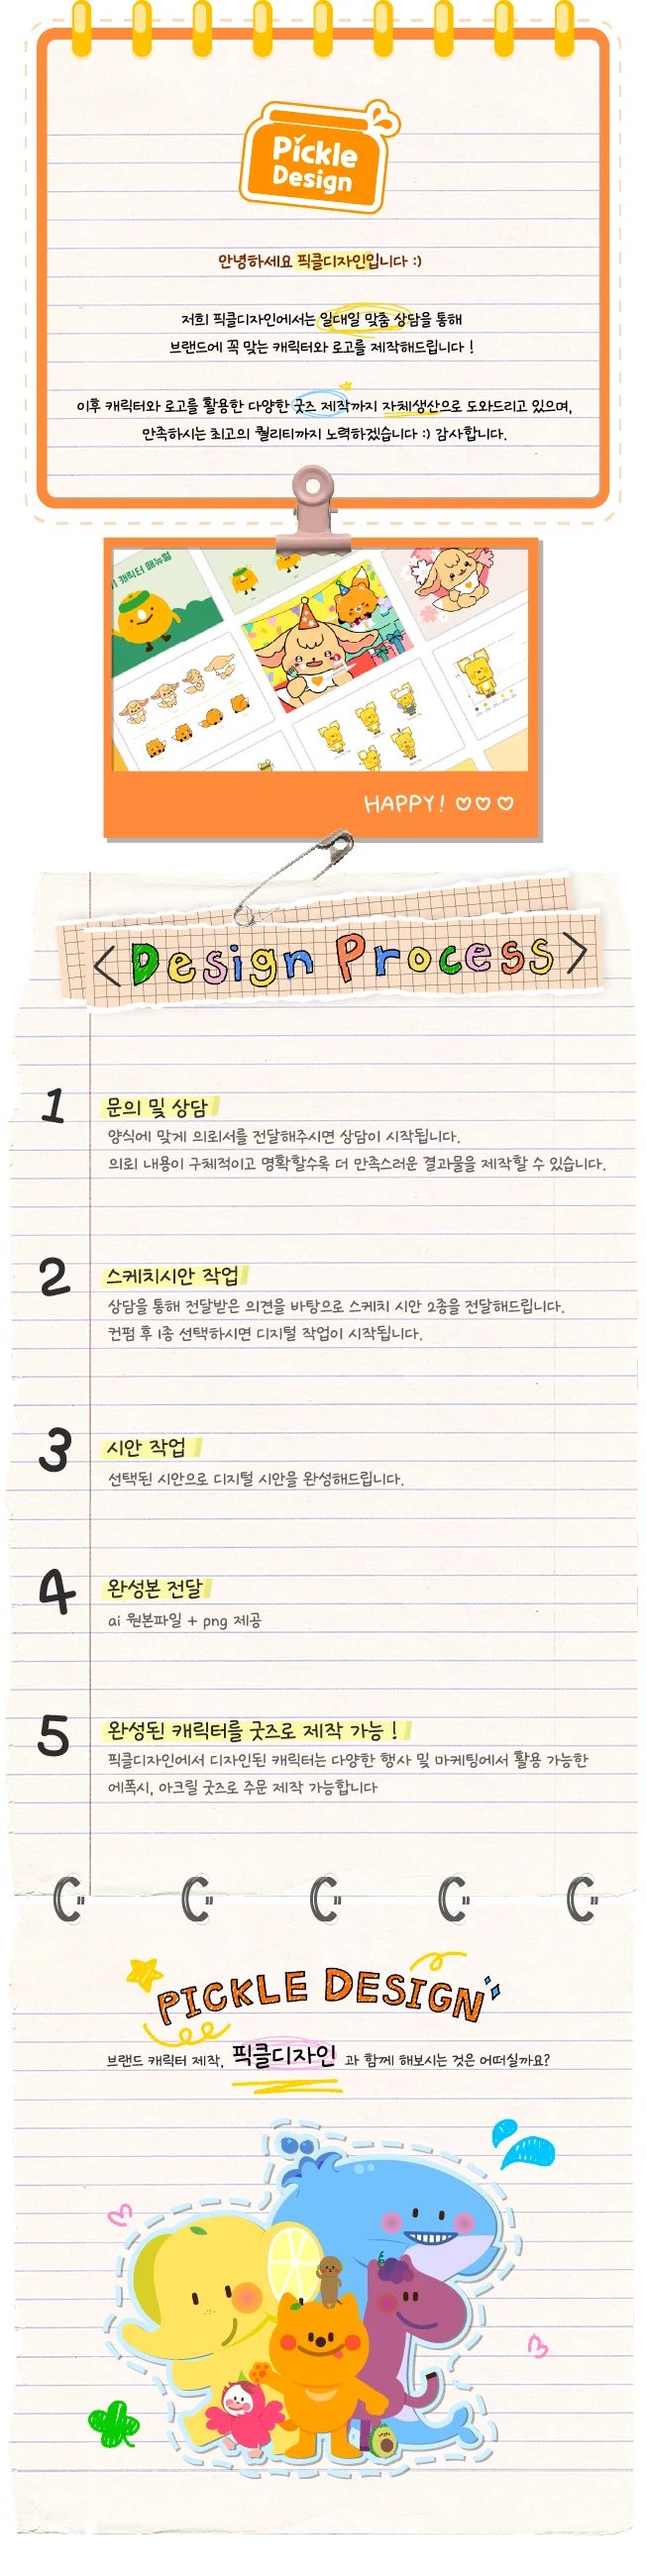 Pickle
Design
안녕하세요 픽클디자인입니다 :)
저희 픽클디자인에서는 일대일 맞춤 상담을 통해
브랜드에 꼭 맞는 캐릭터와 로고를 제작해드립니다 !
이후 캐릭터와 로고를 활용한 다양한 굿즈 제작까지 자체생산으로 도와드리고 있으며,
만족하시는 최고의 퀄리티까지 노력하겠습니다 :) 감사합니다.
캐릭터 매뉴얼
HAPPY! ♡♡♡
<Design Process>
1
문의 및 상담
양식에 맞게 의뢰서를 전달해주시면 상담이 시작됩니다.
의뢰 내용이 구체적이고 명확할수록 더 만족스러운 결과물을 제작할 수 있습니다.
2
스케치시안 작업
상담을 통해 전달받은 의견을 바탕으로 스케치 시안 2종을 전달해드립니다.
컨펌 후 1종 선택하시면 디지털 작업이 시작됩니다.
3
시안 작업
선택된 시안으로 디지털 시안을 완성해드립니다.
4
완성본 전달
ai 원본파일 + png 제공
5
완성된 캐릭터를 굿즈로 제작 가능 !
픽클디자인에서 디자인된 캐릭터는 다양한 행사 및 마케팅에서 활용 가능한
에폭시, 아크릴 굿즈로 주문 제작 가능합니다
PICKLE DESIGN
브랜드 캐릭터 제작, 픽클디자인 과 함께 해보시는 것은 어떠실까요?